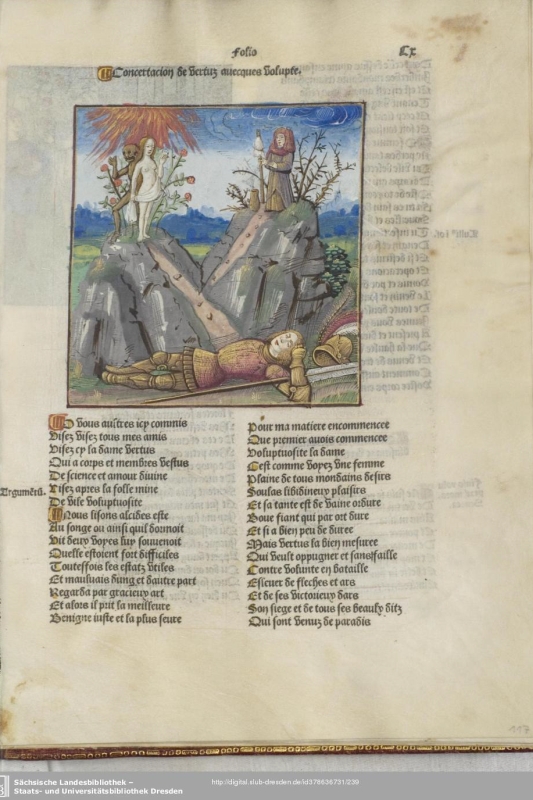 Folio
Cx
Concertacion de vertuz avecques volupte.
O vous aultres icy commis
Visez visez tous mes amis
Visez cy la dame vertus
Qui a corps et membres vestus
De science et amour divine
Visez apres la folle mine
De vile voluptuosite
Argumētū.
Nous lisons alcides este
Au songe ou ainsi quil dormoit
Vit deux voyes luy souvenoit
Quelle estoient fort difficiles
Touteffois les estatz utiles
Et maulvais dung et daultre part
Regarda par gracieux art
Et alors il prit la meilleure
Benigne iuste et la plus seure
Pour ma matiere encommencee
Que premier avois commencee
Voluptuosite la dame
Cest comme voyez une femme
Plaine de tous mondains desirs
Soulas libidineux plaisirs
Et sa tante est de vaine ordure
Boue fiant qui par ort dure
Et si a bien peu de duree
Mais vertus la bien mesuree
Qui veult oppugner et sans faille
Contre volunte en bataille
Eslever de fleches et ars
Et de ses victorieux dars
Son siege et de tous ses beaulx ditz
Qui sont venuz de paradis
117
Sächsische Landesbibliothek –
Staats- und Universitätsbibliothek Dresden
http://digital.slub-dresden.de/id378636731/239